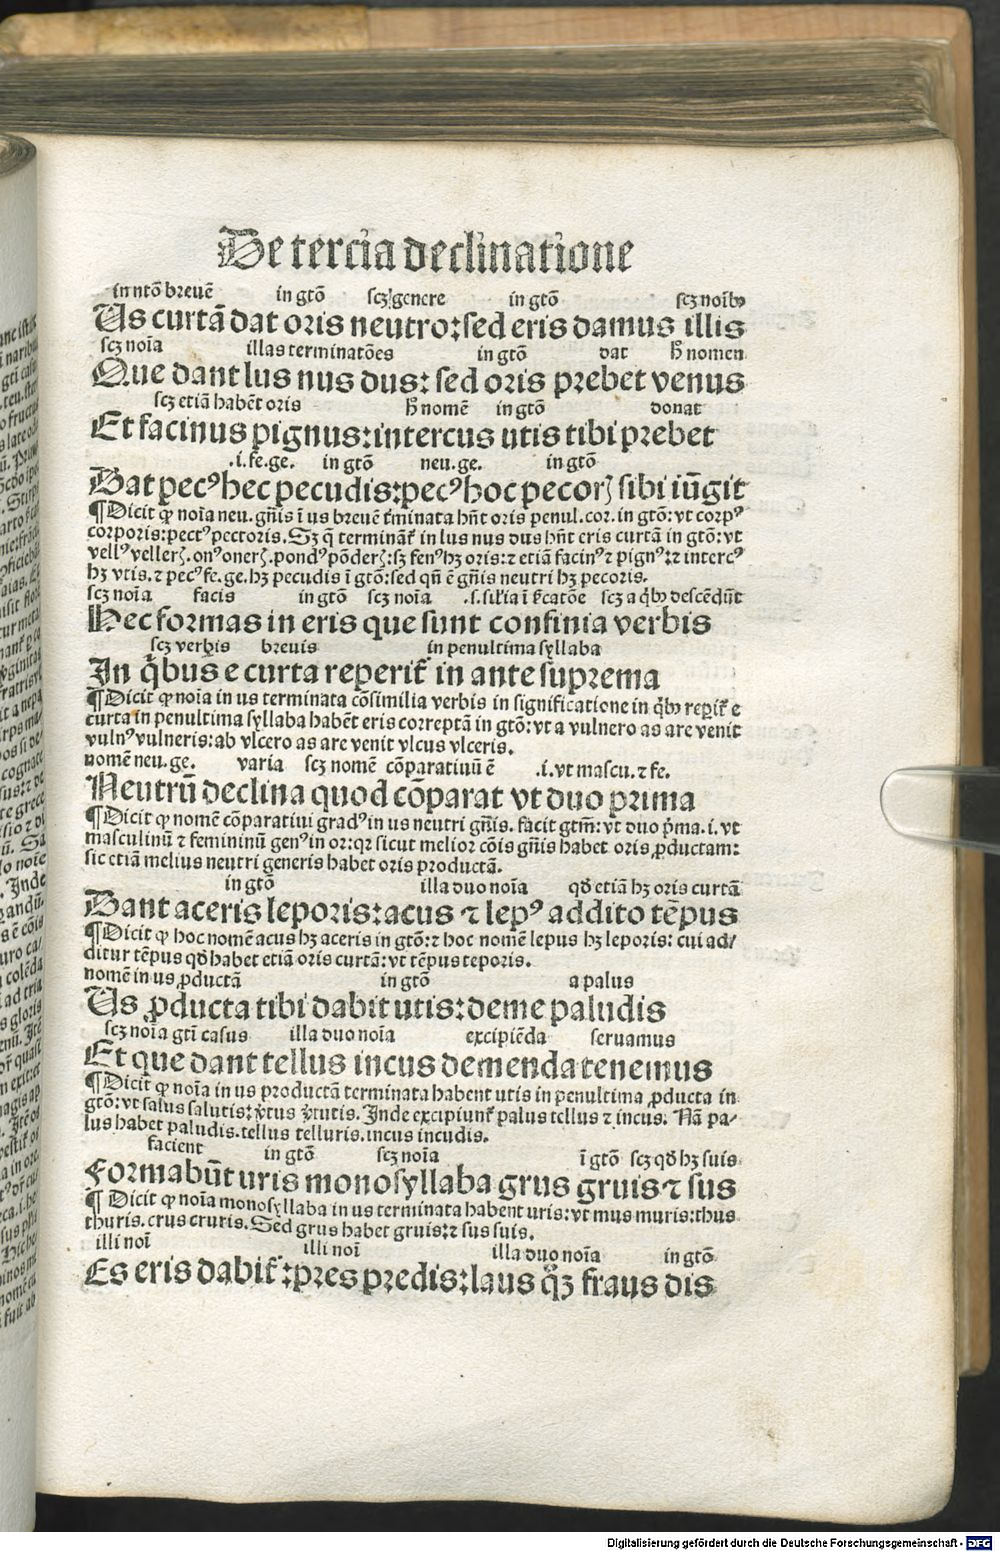 De tercia declinatione
in ntō breuē in gtō scʒ genere in gtō scʒ noībꝫ
Us curtā dat oris neutro: sed eris damus illis
scʒ noīa illas terminatōes in gtō dat h̄ nomen
Que dant lus nus dus: sed oris prebet venus
scʒ etiā habēt oris h̄ nomē in gtō donat
Et facinus pignus: intercus utis tibi prebet
.i. fe. ge. in gtō neu. ge. in gtō
Dat pecꝰ hec pecudis: pecꝰ hoc pecorꝭ sibi iūgit
¶ Dicit ꝙ noīa neu. gn̄is ī us breuē t̄minata hn̄t oris penul. cor. in gtō: vt corpꝰ
corporis: pectꝰ pectoris. Sʒ q̄ terminānt̄ in lus nus dus hn̄t eris curtā in gtō: vt
vellꝰ vellerꝭ. onꝰ onerꝭ. pondꝰ pōderꝭ: sʒ fenꝰ hʒ oris: ⁊ etiā facinꝰ ⁊ pignꝰ: ⁊ intercꝰ
hʒ vtis. ⁊ pecꝰ fe. ge. hʒ pecudis ī gtō: sed qn̄ ē gn̄is neutri hʒ pecoris.
scʒ noīa facis in gtō scʒ noīa .s. sil'ia ī s̄catōe scʒ a q̄bꝫ descēdūt
Hec formas in eris que sunt confinia verbis
scʒ verbis breuis in penultima syllaba
In q̄bus e curta reperit̄ in ante suprema
¶ Dicit ꝙ noīa in us terminata cōsimilia verbis in significatione in q̄bꝫ reꝑit̄ e
curta in penultima syllaba habēt eris correptā in gtō: vt a vulnero as are venit
vulnꝰ vulneris: ab vlcero as are venit vlcus vlceris.
nomē neu. ge. varia scʒ nomē cōparatiuū ē .i. vt mascu. ⁊ fe.
Neutrū declina quod cōparat vt duo prima
¶ Dicit ꝙ nomē cōparatiui gradꝰ in us neutri gn̄is. facit gtm̄: vt duo p̄ma. i. vt
masculinū ⁊ femininū genꝰ in or: qꝛ sicut melior cōis gn̄is habet oris ꝓductam:
sic etiā melius neutri generis habet oris productā.
in gtō illa duo noīa qd̄ etiā hʒ oris curtā
Dant aceris leporis: acus ⁊ lepꝰ addito tēpus
¶ Dicit ꝙ hoc nomē acus hʒ aceris in gtō: ⁊ hoc nomē lepus hʒ leporis: cui ad/
ditur tēpus qd̄ habet etiā oris curtā: vt tēpus teporis.
nomē in us ꝓductā in gtō a palus
Us ꝓducta tibi dabit utis: deme paludis
scʒ noīa gtī casus illa duo noīa excipiēda seruamus
Et que dant tellus incus demenda tenemus
¶ Dicit ꝙ noīa in us productā terminata habent utis in penultima ꝓducta in
gtō: vt salus salutis: v̄tus v̄tutis. Inde excipiunt̄ palus tellus ⁊ incus. Nā pa-/
lus habet paludis. tellus telluris. incus incudis.
facient in gtō scʒ noīa ī gtō scʒ qd̄ hʒ suis
Formabūt uris monosyllaba grus gruis ⁊ sus
¶ Dicit ꝙ noīa monosyllaba in us terminata habent uris: vt mus muris: thus
thuris. crus cruris. Sed grus habet gruis: ⁊ sus suis.
illi noī illi noī illa duo noīa in gtō
Es eris dabit̄: pres predis: laus q̄ʒ fraus dis
Digitalisierung gefördert durch die Deutsche Forschungsgemeinschaft - DFG